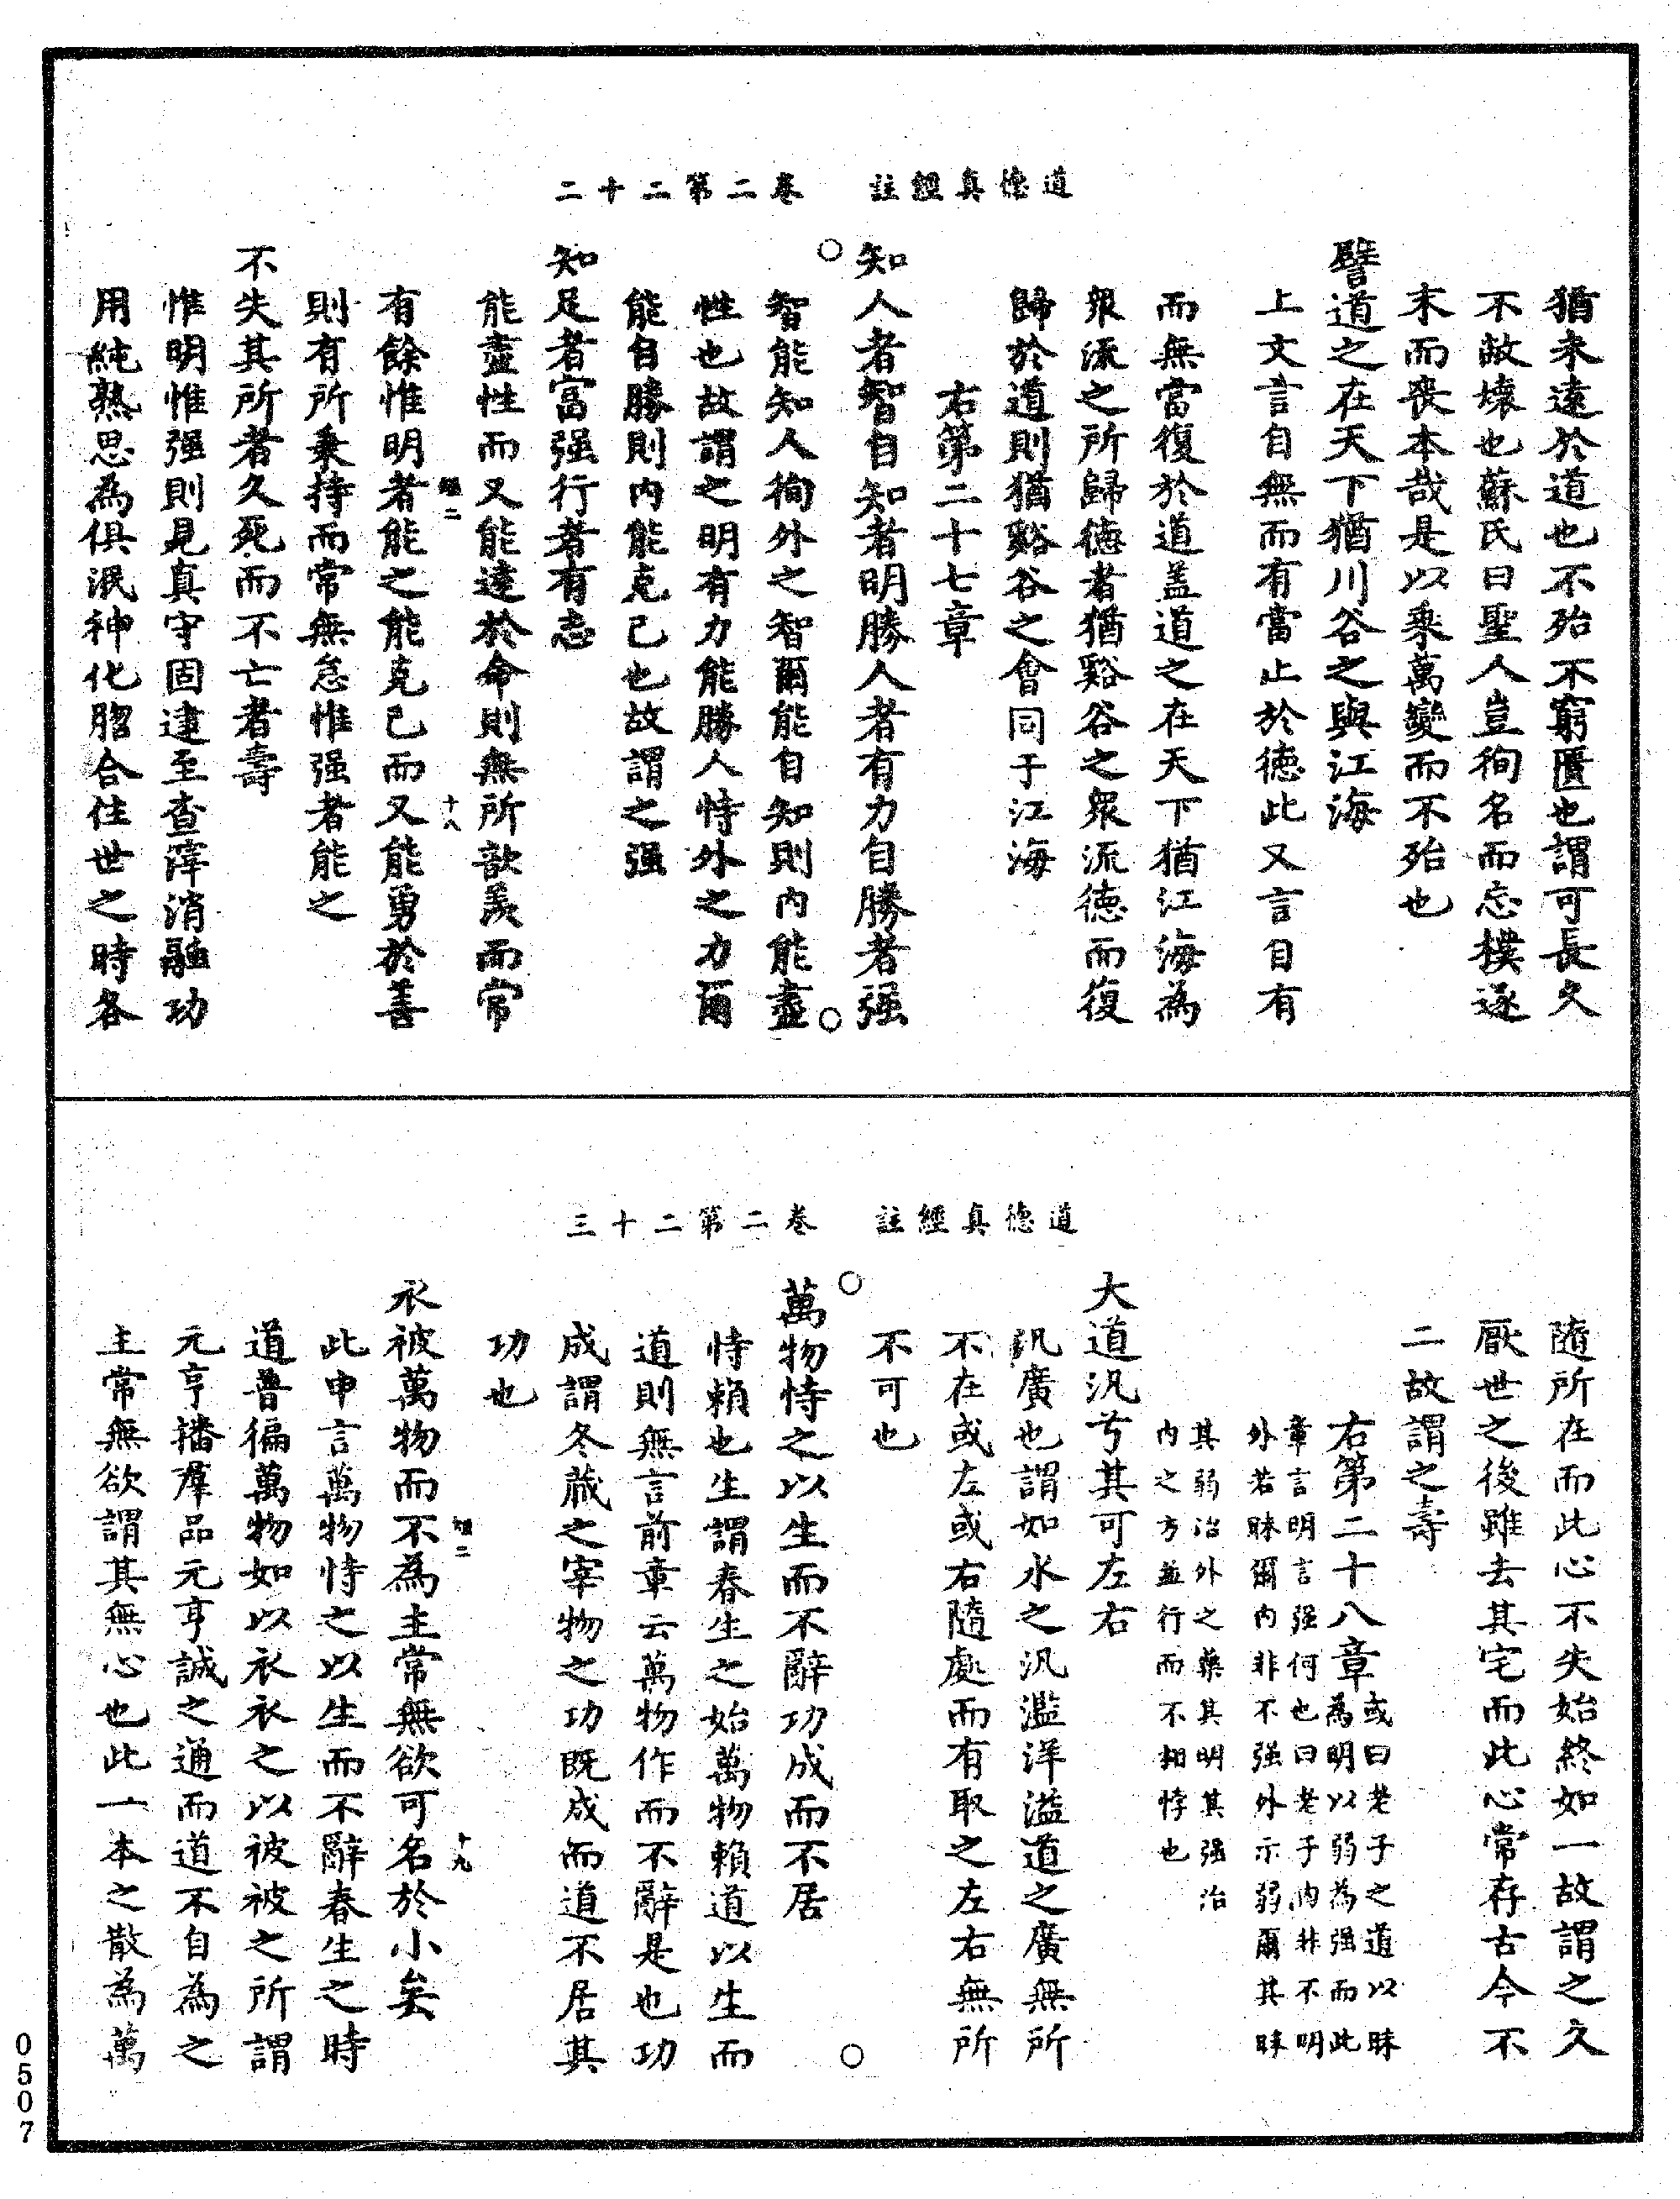 道德真經註　卷二第二十二
猶未遠於道也不殆不窮匱也謂可長久
不敝壞也蘇氏曰聖人豈徇名而忘樸逐
末而喪本哉是以乘萬變而不殆也
譬道之在天下猶川谷之與江海
上文言自無而有當止於德此又言自有
而無當復於道蓋道之在天下猶江海為
眾流之所歸德者猶谿谷之眾流德而復
歸於道則猶谿谷之會同于江海
右第二十七章
知人者智自知者明勝人者有力自勝者强
智能知人徇外之智爾能自知則內能盡
性也故謂之明有力能勝人恃外之力爾
能自勝則內能克己也故謂之强
知足者富强行者有志
能盡性而又能達於命則無所歆羨而常
有餘惟明者能之能克己而又能勇於善
則有所秉持而常無怠惟强者能之
不失其所者久死而不亡者壽
惟明惟强則見真守固逮至查滓消融功
用純熟思為俱泯神化脗合住世之時各
道德真經註　卷二第二十三
隨所在而此心不失始終如一故謂之久
厭世之後雖去其宅而此心常存古今不
二故謂之壽
右第二十八章
或曰老子之道以昧
為明以弱為强而此
章言明言强何也曰老子內非不明
外若昧爾內非不强外示弱爾其昧
其弱治外之藥其明其强治
內之方並行而不相悖也
大道汎兮其可左右
汎廣也謂如水之汎濫洋溢道之廣無所
不在或左或右隨處而有取之左右無所
不可也
萬物恃之以生而不辭功成而不居
恃賴也生謂春生之始萬物賴道以生而
道則無言前章云萬物作而不辭是也功
成謂冬藏之宰物之功既成而道不居其
功也
衣被萬物而不為主常無欲可名於小矣
此申言萬物恃之以生而不辭春生之時
道普徧萬物如以衣衣之以被被之所謂
元亨播羣品元亨誠之通而道不自為之
主常無欲謂其無心也此一本之散為萬
經二　十八
經二　十九
0507